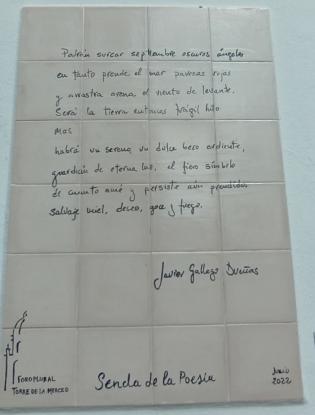 Podrán surcar septiembre oscuros ángeles
en tanto prende el mar pavezas rojas
y arrastra arena el viento de levante.
Será la tierra entonces frágil hilo
mas
habrá un sereno, un dulce beso ardiente,
guardián de eterna luz, el fiero símbolo
de cuanto amé y persiste aún prendido:
salvaje miel, deseo, goce y fuego.
Javier Gallego Dueñas
FORO PLURAL
TORRE DE LA MERCED
Senda de la Poesía
Junio
2022